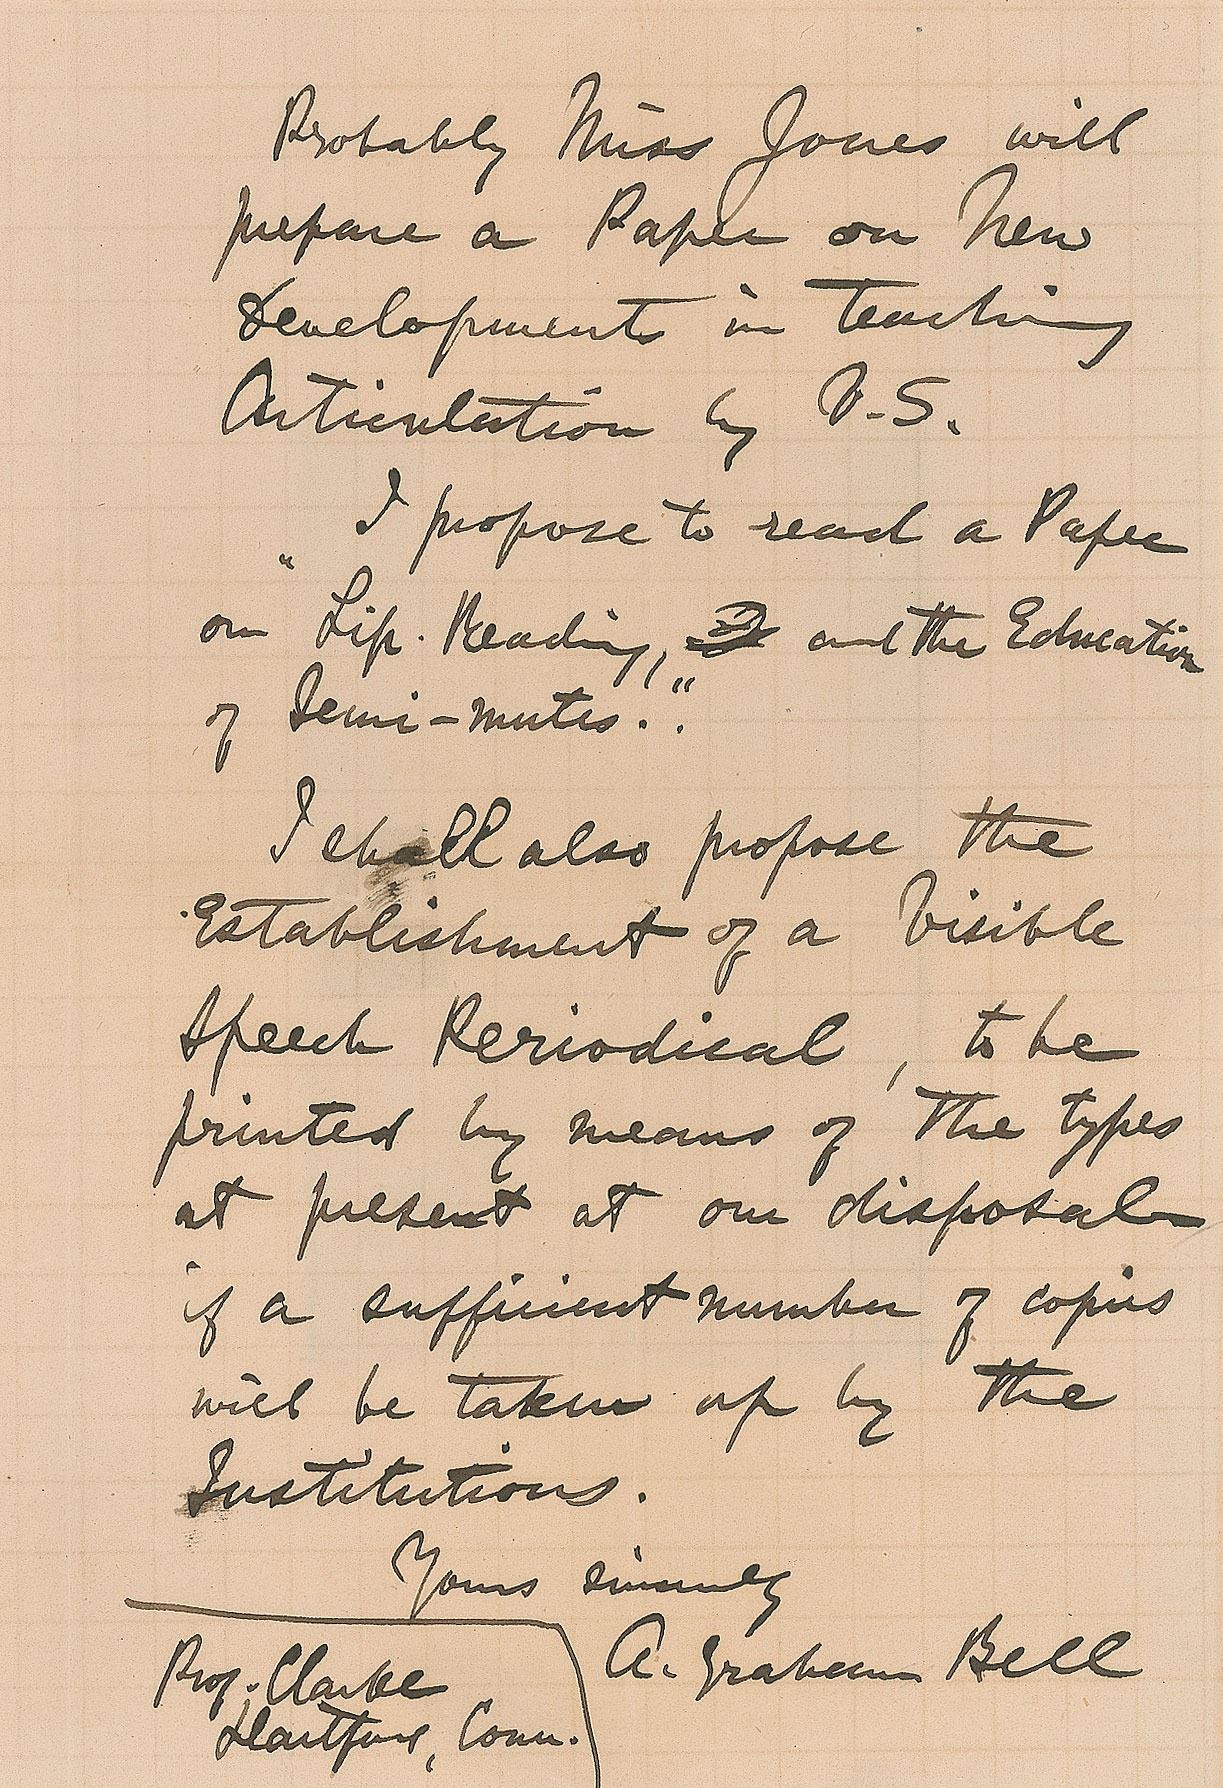 Probably Miss Jones will
prepare a Paper on New
Developments in teaching
Articulation by V-S.
I propose to read a Paper
on "Lip-Reading, and the Education
of Semi-mutes."
I shall also propose the
Establishment of a Visible
Speech Periodical, to be
printed by means of the types
at present at our disposal
if a sufficient number of copies
will be taken up by the
Institutions.
Yours sincerely
A. Graham Bell
Prof. Clarke
Hartford, Conn.